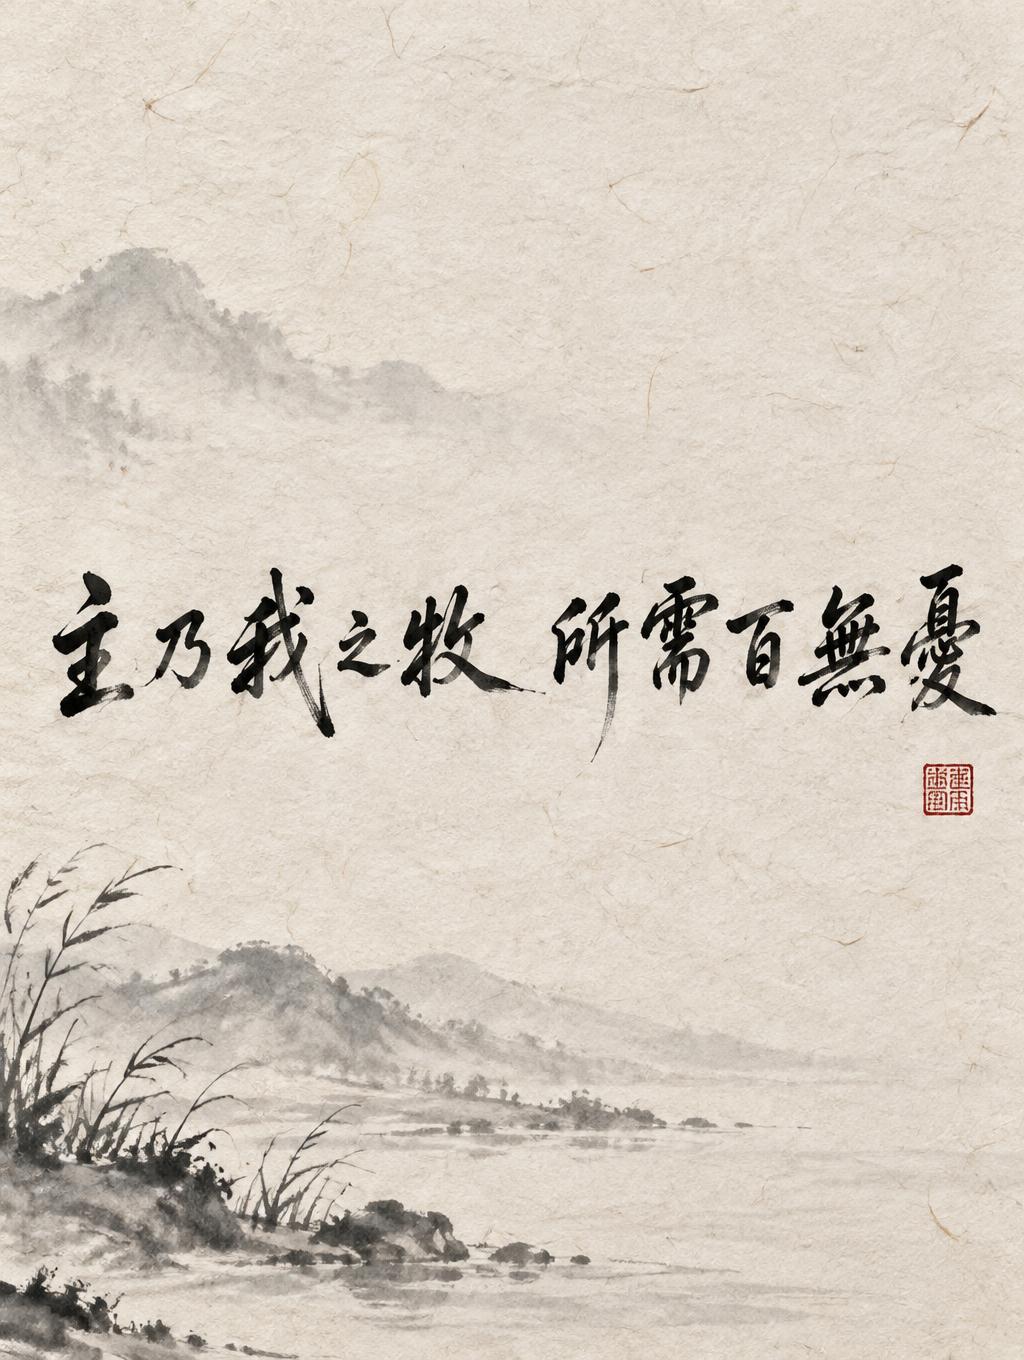 主乃我之牧 所需百無憂